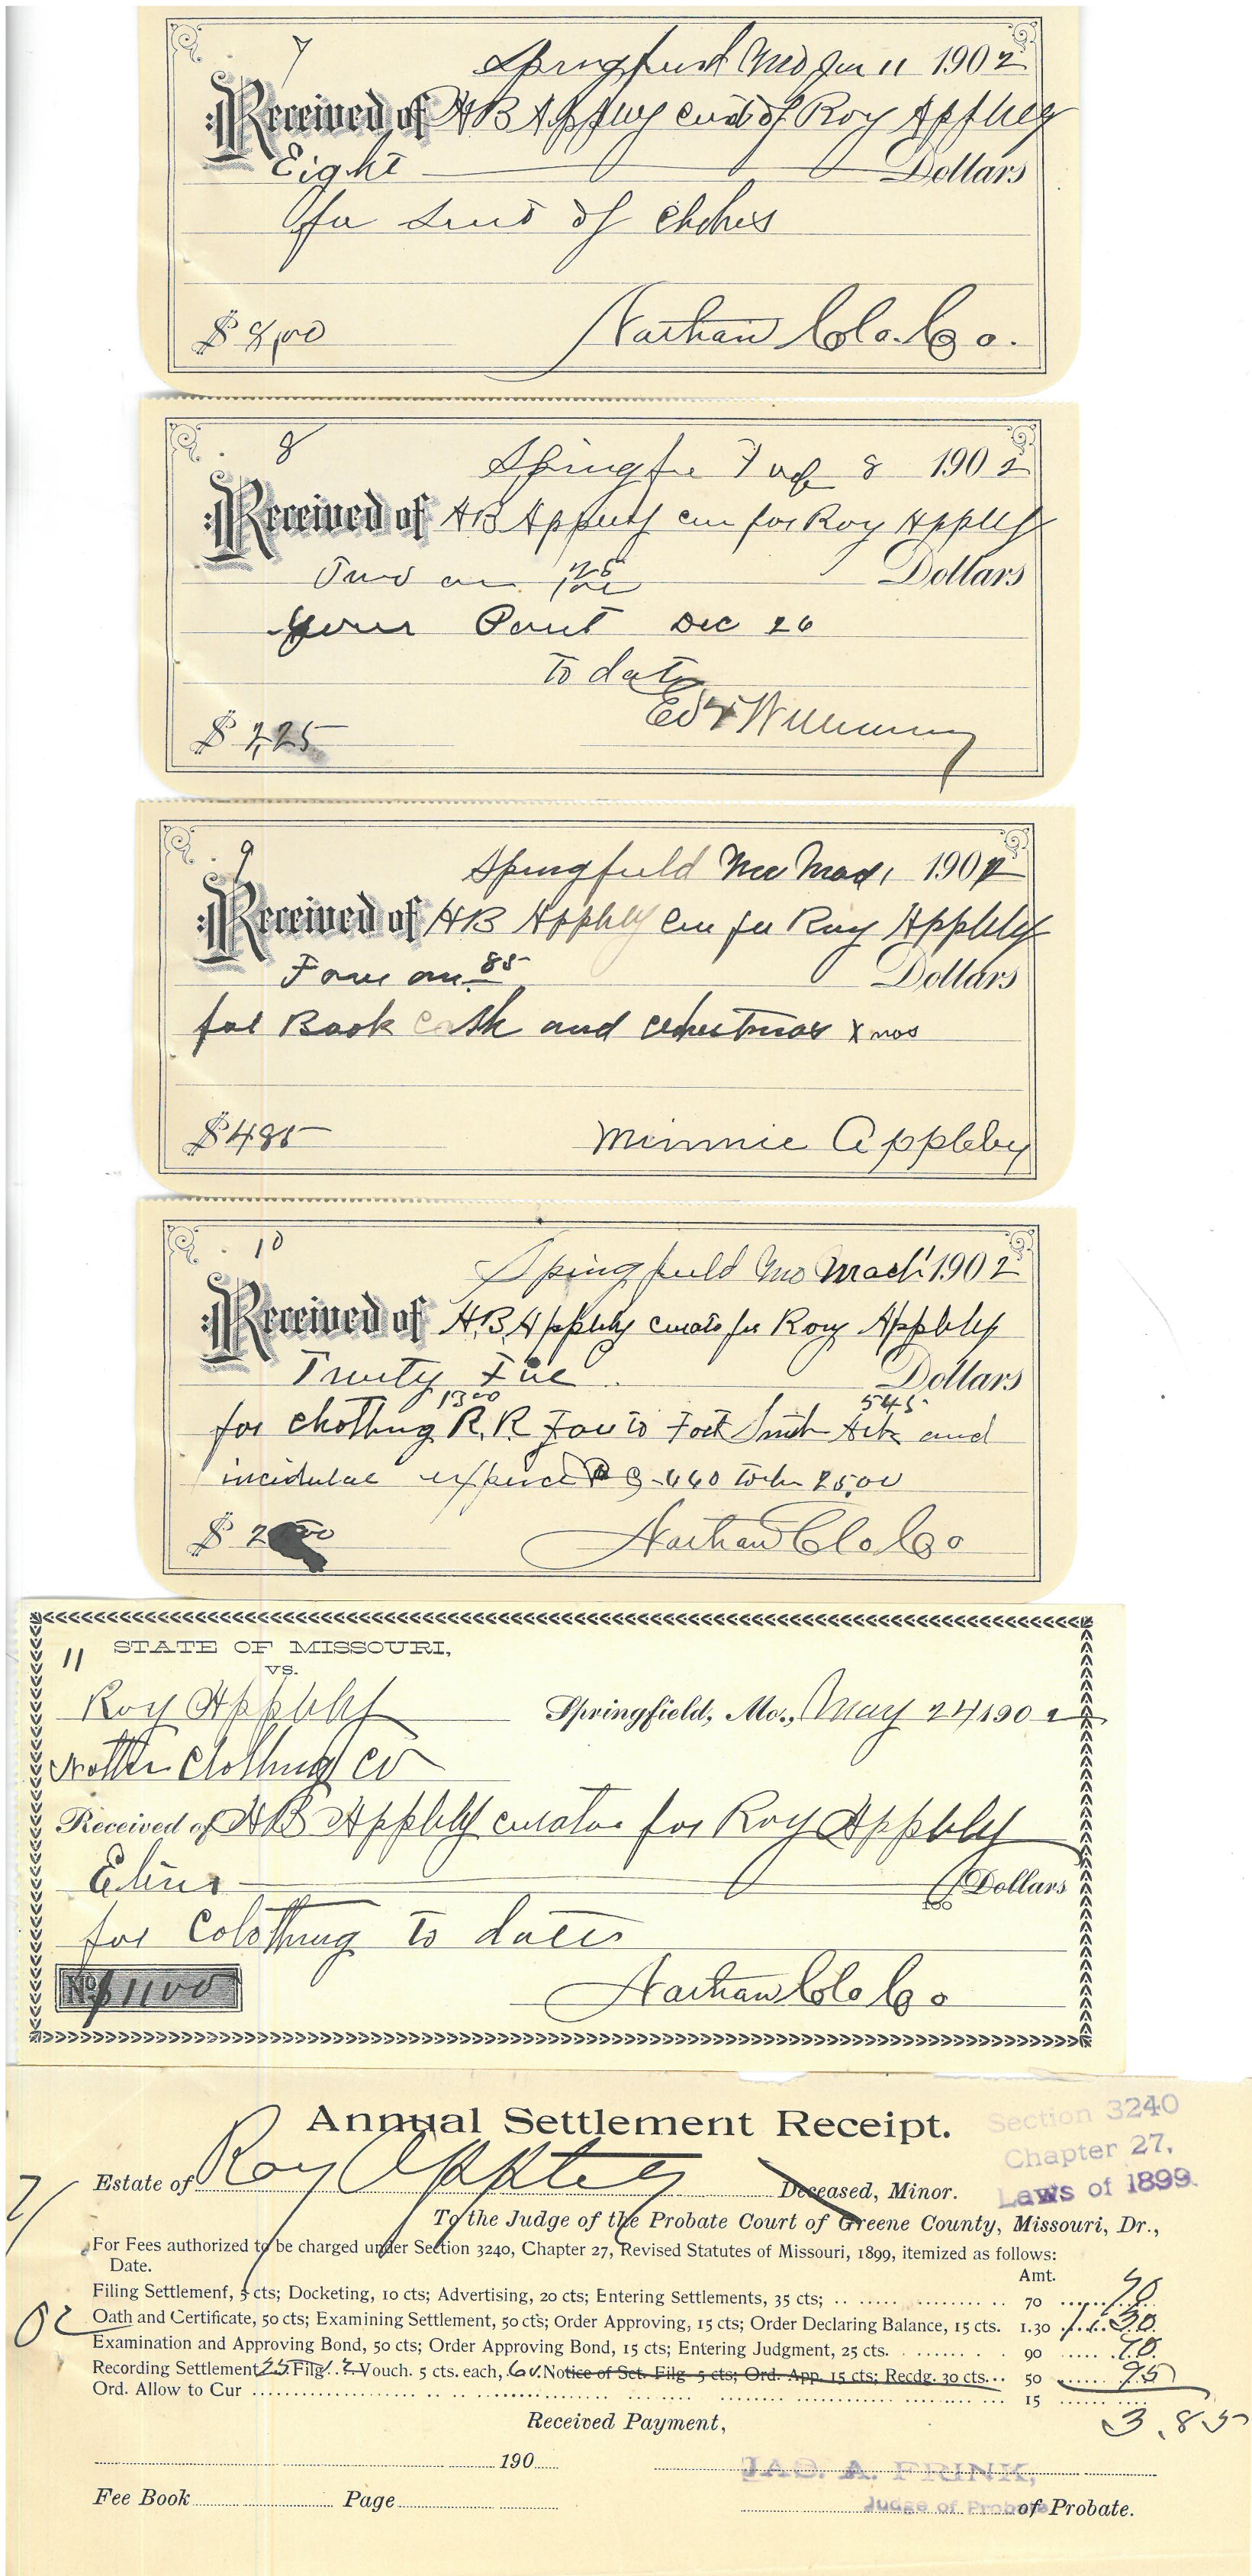 7
Springfield Mo Jan 11 1902
Received of HB Appleby curat of Roy Appleby
Eight Dollars
for suit of Clothes
$ 8,00 Nathan Clo. Co.
8
Springfie 8 1902
Received of HB Appleby cur for Roy Appleby
Two an 25/100 Dollars
Dec 26
to date
$ 2,25 Ed Williams
9
Springfield Mo 1902
Received of HB Appleby cur for Roy Appleby
Four an 85 Dollars
for Book cash and xmas
$ 485 Minnie Appleby
10
Springfield Mo Mach 1 1902
Received of H.B. Appleby curato for Roy Appleby
Twenty Five Dollars
13 00 545
for Clothing R.R. Fare to Fort Smith Ark and
incidental 660 25,00
$ 2 00 Nathan Clo Co
11 STATE OF MISSOURI,
VS.
Roy Appleby Springfield, Mo., May 24 1902
Clothing Co
Received of HB Appleby curator for Roy Appleby
Dollars
100
for Colothing to date
No. $ 11 00 Nathan Clo Co
Annual Settlement Receipt. Section 3240
Chapter 27,
Laws of 1899.
Estate of Roy Appleby Deceased, Minor.
To the Judge of the Probate Court of Greene County, Missouri, Dr.,
For Fees authorized to be charged under Section 3240, Chapter 27, Revised Statutes of Missouri, 1899, itemized as follows:
Date. Amt.
Filing Settlement, 5 cts; Docketing, 10 cts; Advertising, 20 cts; Entering Settlements, 35 cts; 70 70
Oath and Certificate, 50 cts; Examining Settlement, 50 cts; Order Approving, 15 cts; Order Declaring Balance, 15 cts. 1.30 1.30
Examination and Approving Bond, 50 cts; Order Approving Bond, 15 cts; Entering Judgment, 25 cts. 90 .90
Recording Settlement 25 Filg. 12 Vouch. 5 cts. each, 60. Notice of Set. Filg. 5 cts; Ord. App. 15 cts; Recdg. 30 cts. 50 95
Ord. Allow to Cur 15
3.85
Received Payment,
190
JAO. A. FRINK,
Judge of Probate
Fee Book Page of Probate.